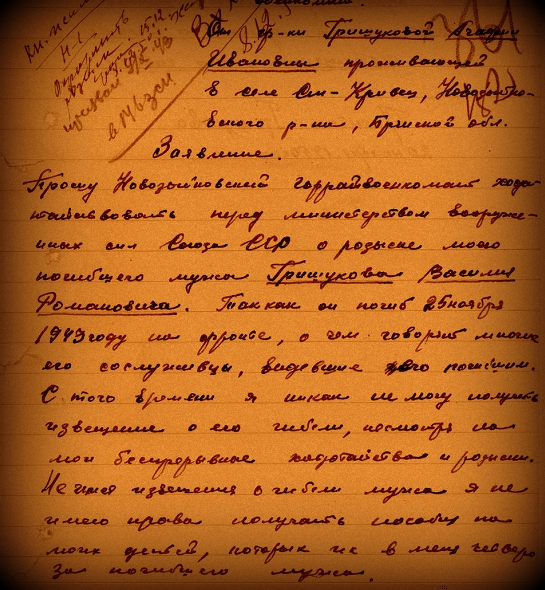 От гр-ки Грищуковой
Ивановны проживающей
в селе Ст-Кривец, Новозыбко-
вского р-на, Брянской обл.
Заявление.
Прошу Новозыбковский горрайвоенкомат хода-
тайствовать перед министерством вооруже-
нных сил Союза ССР о розыске моего
погибшего мужа Грищукова Василия
Романовича. Так как он погиб 25 ноября
1943 году на фронте, о чем говорят многие
его сослуживцы, видевшие его погибшим.
С того времени я никак не могу получить
извещение о его гибели, несмотря на
мои беспрерывные ходотайства и розыски.
Не имея извещения о гибели мужа я не
имею права получать пособия на
моих детей, которых у меня четверо
за погибшего мужа.